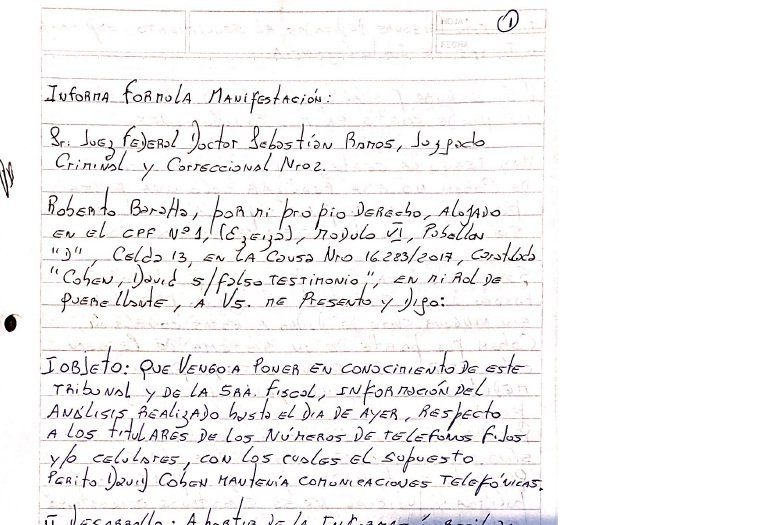 1
INFORMA FORMULA MANIFESTACIÓN:
Sr. JUEZ FEDERAL Doctor Sebastián Ramos, Juzgado
Criminal y Correccional Nro 2.
Roberto Baratta, por mi propio DERECHO, Alojado
EN el CPF Nº 1, (Ezeiza), modulo VI, Pabellon
"D", Celda 13, EN la Causa Nro 16.283/2017, Caratulada
"Cohen, David s/falso TESTIMONIO", EN mi Rol DE
querellante, A VS. me Presento y Digo:
I OBJETO: QUE VENGO A PONER EN CONOCIMIENTO DE este
TRIBUNAL y DE LA SRA. Fiscal, INFORMACIÓN DEL
ANÁLISIS REALIZADO hasta el DIA DE AYER, RESPECTO
A LOS TITULARES DE LOS NÚMEROS DE TELEFONOS FIJOS
y/o CELULARES, CON LOS cuales EL SUPUESTO
PERITO David Cohen MANTENÍA COMUNICACIONES TELEFÓNICAS.
II DESARROLLO: A PARTIR DE LA